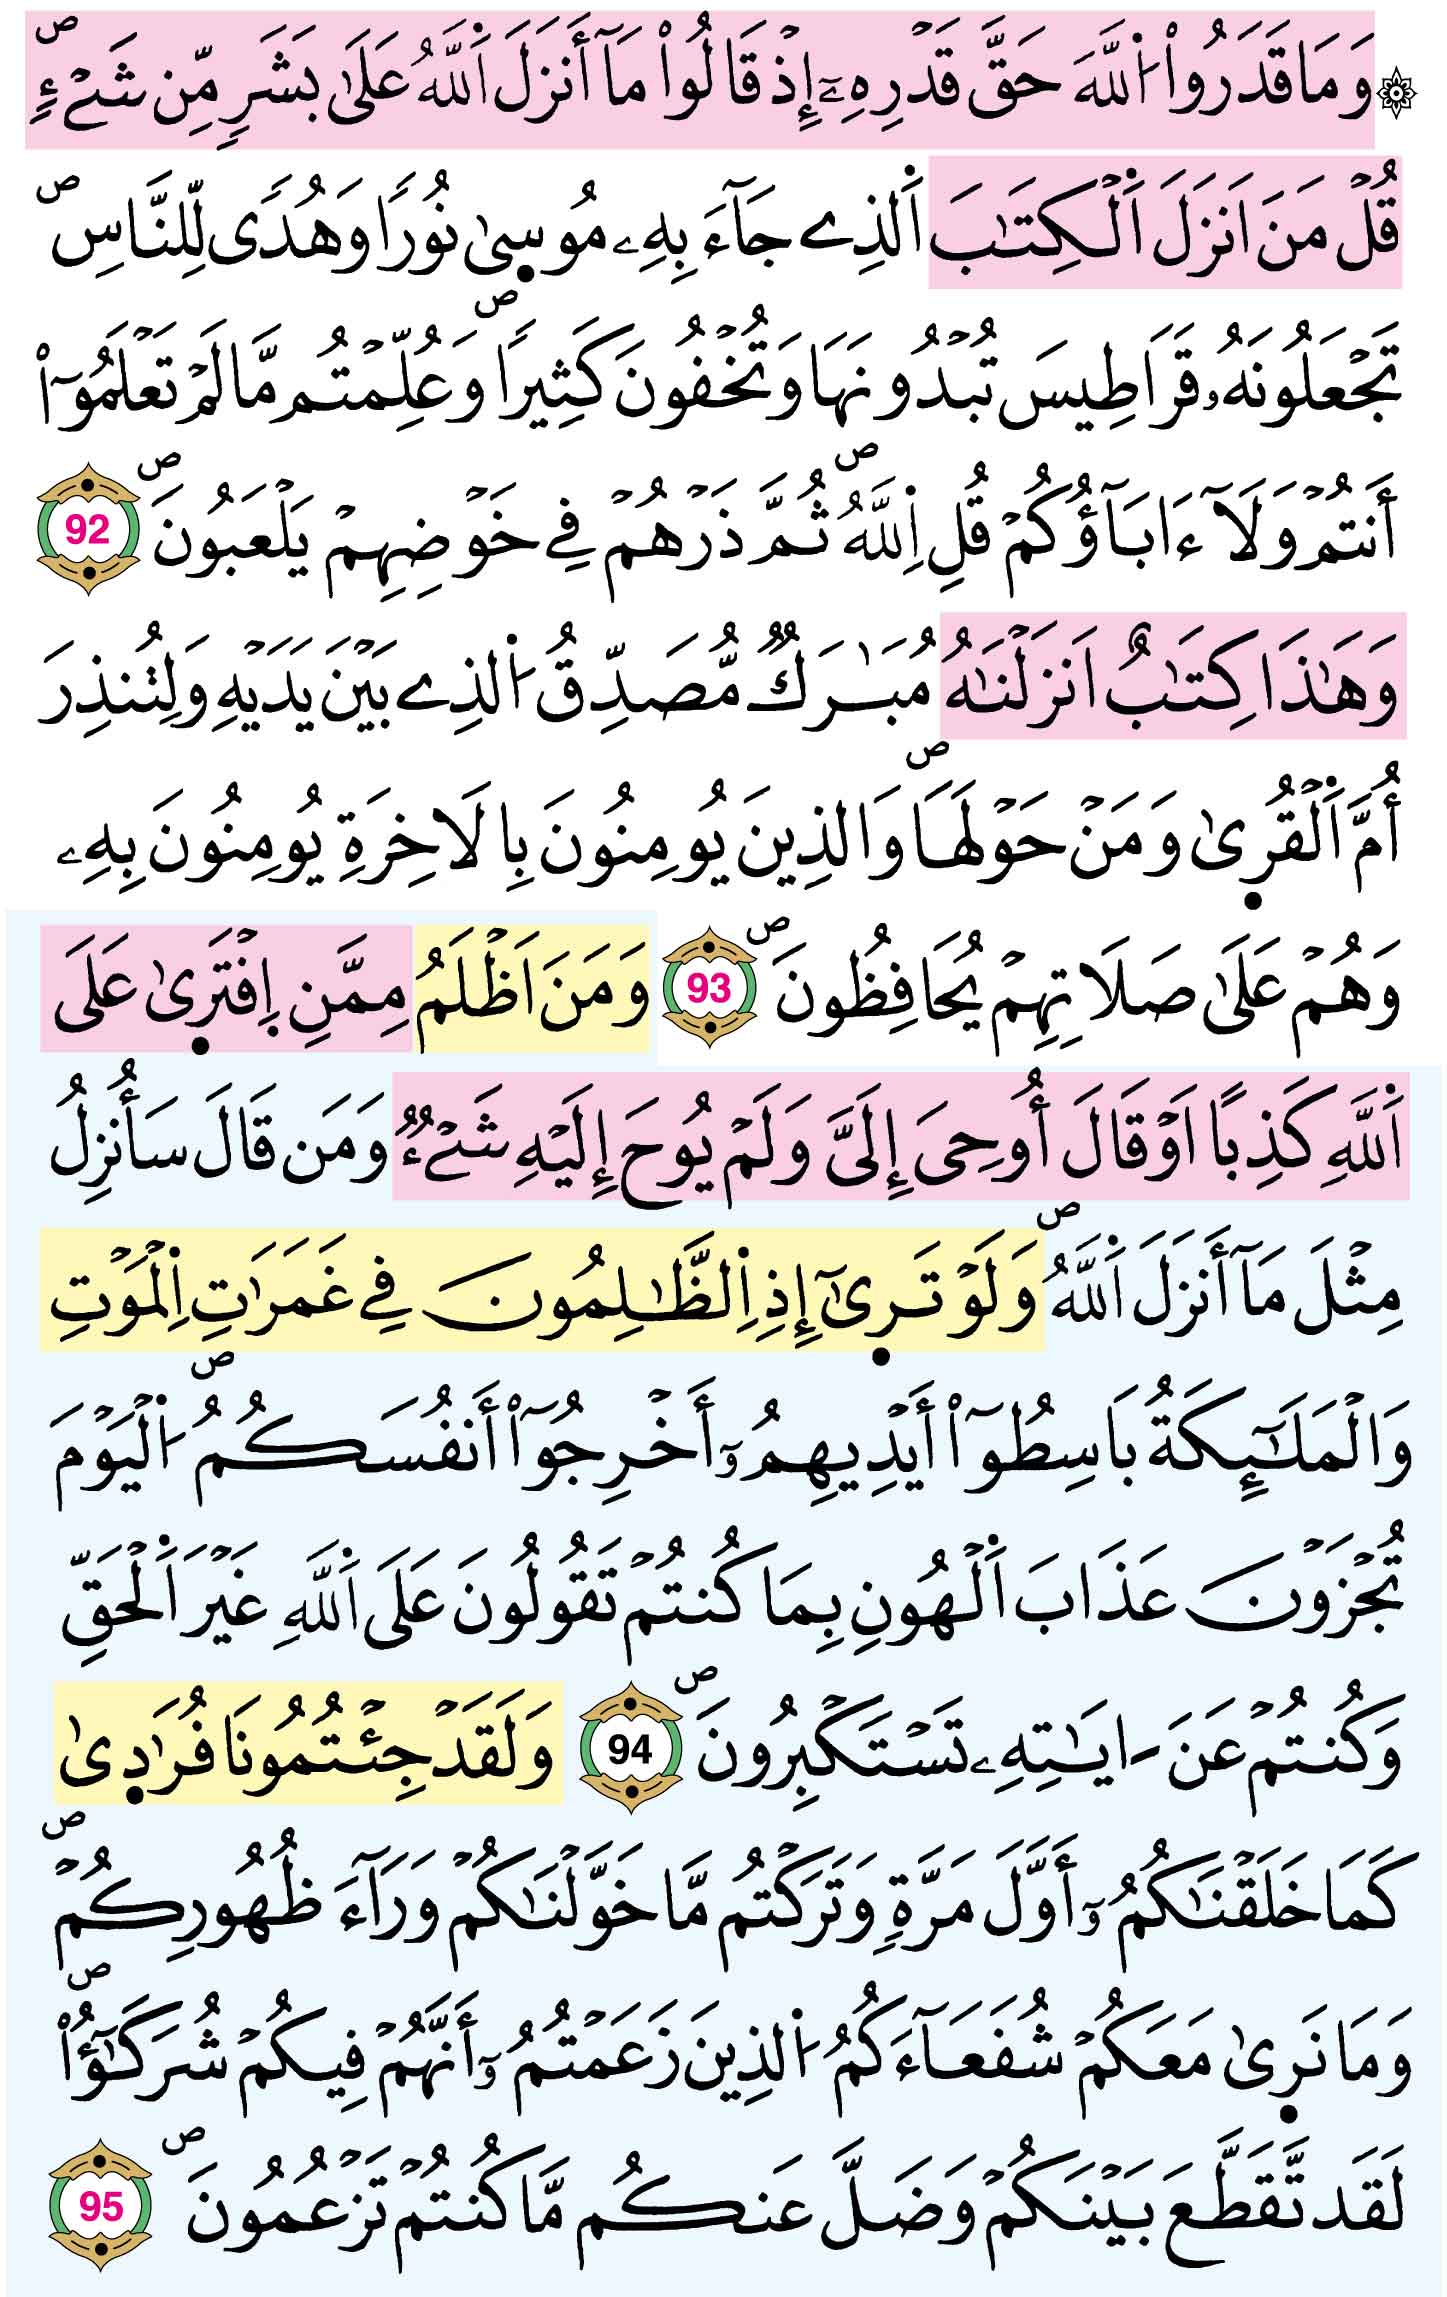 ۞ وَمَا قَدَرُواْ اُ۬للَّهَ حَقَّ قَدْرِهِۦٓ إِذْ قَالُواْ مَآ أَنزَلَ اَ۬للَّهُ عَلَىٰ بَشَرٍ مِّن شَےْءٍۖ
قُلْ مَنَ اَنزَلَ اَ۬لْكِتَٰبَ اَ۬لذِے جَآءَ بِهِۦ مُوس۪ىٰ نُورًا وَهُدًى لِّلنَّاسِۖ
تَجْعَلُونَهُۥ قَرَاطِيسَ تُبْدُونَهَا وَتُخْفُونَ كَثِيرًاۖ وَعُلِّمْتُم مَّا لَمْ تَعْلَمُوٓاْ
أَنتُمْ وَلَآ ءَابَآؤُكُمْ قُلِ اِ۬للَّهُۖ ثُمَّ ذَرْهُمْ فِے خَوْضِهِمْ يَلْعَبُونَۖ 92
وَهَٰذَا كِتَٰبٌ اَنزَلْنَٰهُ مُبَٰرَكٌ مُّصَدِّقُ اُ۬لذِے بَيْنَ يَدَيْهِ وَلِتُنذِرَ
أُمَّ اَ۬لْقُر۪ىٰ وَمَنْ حَوْلَهَاۖ وَالذِينَ يُومِنُونَ بِالَاخِرَةِ يُومِنُونَ بِهِۦ
وَهُمْ عَلَىٰ صَلَاتِهِمْ يُحَافِظُونَۖ 93 وَمَنَ اَظْلَمُ مِمَّنِ اِ۪فْتَر۪ىٰ عَلَى
اَ۬للَّهِ كَذِبًا اَوْ قَالَ أُوحِىَ إِلَىَّ وَلَمْ يُوحَ إِلَيْهِ شَےْءٌ وَمَن قَالَ سَأُنزِلُ
مِثْلَ مَآ أَنزَلَ اَ۬للَّهُۖ وَلَوْ تَر۪ىٰٓ إِذِ اِ۬لظَّٰلِمُونَ فِے غَمَرَٰتِ اِ۬لْمَوْتِ
وَالْمَلَٰٓئِكَةُ بَاسِطُوٓاْ أَيْدِيهِمُۥٓ أَخْرِجُوٓاْ أَنفُسَكُمُۖ اُ۬لْيَوْمَ
تُجْزَوْنَ عَذَابَ اَ۬لْهُونِ بِمَا كُنتُمْ تَقُولُونَ عَلَى اَ۬للَّهِ غَيْرَ اَ۬لْحَقِّ
وَكُنتُمْ عَنَ اٰيَٰتِهِۦ تَسْتَكْبِرُونَۖ 94 وَلَقَدْ جِئْتُمُونَا فُرَٰد۪ىٰ
كَمَا خَلَقْنَٰكُمُۥٓ أَوَّلَ مَرَّةٍ وَتَرَكْتُم مَّا خَوَّلْنَٰكُمْ وَرَآءَ ظُهُورِكُمْۖ
وَمَا نَر۪ىٰ مَعَكُمْ شُفَعَآءَكُمُ اُ۬لذِينَ زَعَمْتُمُۥٓ أَنَّهُمْ فِيكُمْ شُرَكَٰٓؤُاْۖ
لَقَد تَّقَطَّعَ بَيْنَكُمْ وَضَلَّ عَنكُم مَّا كُنتُمْ تَزْعُمُونَۖ 95